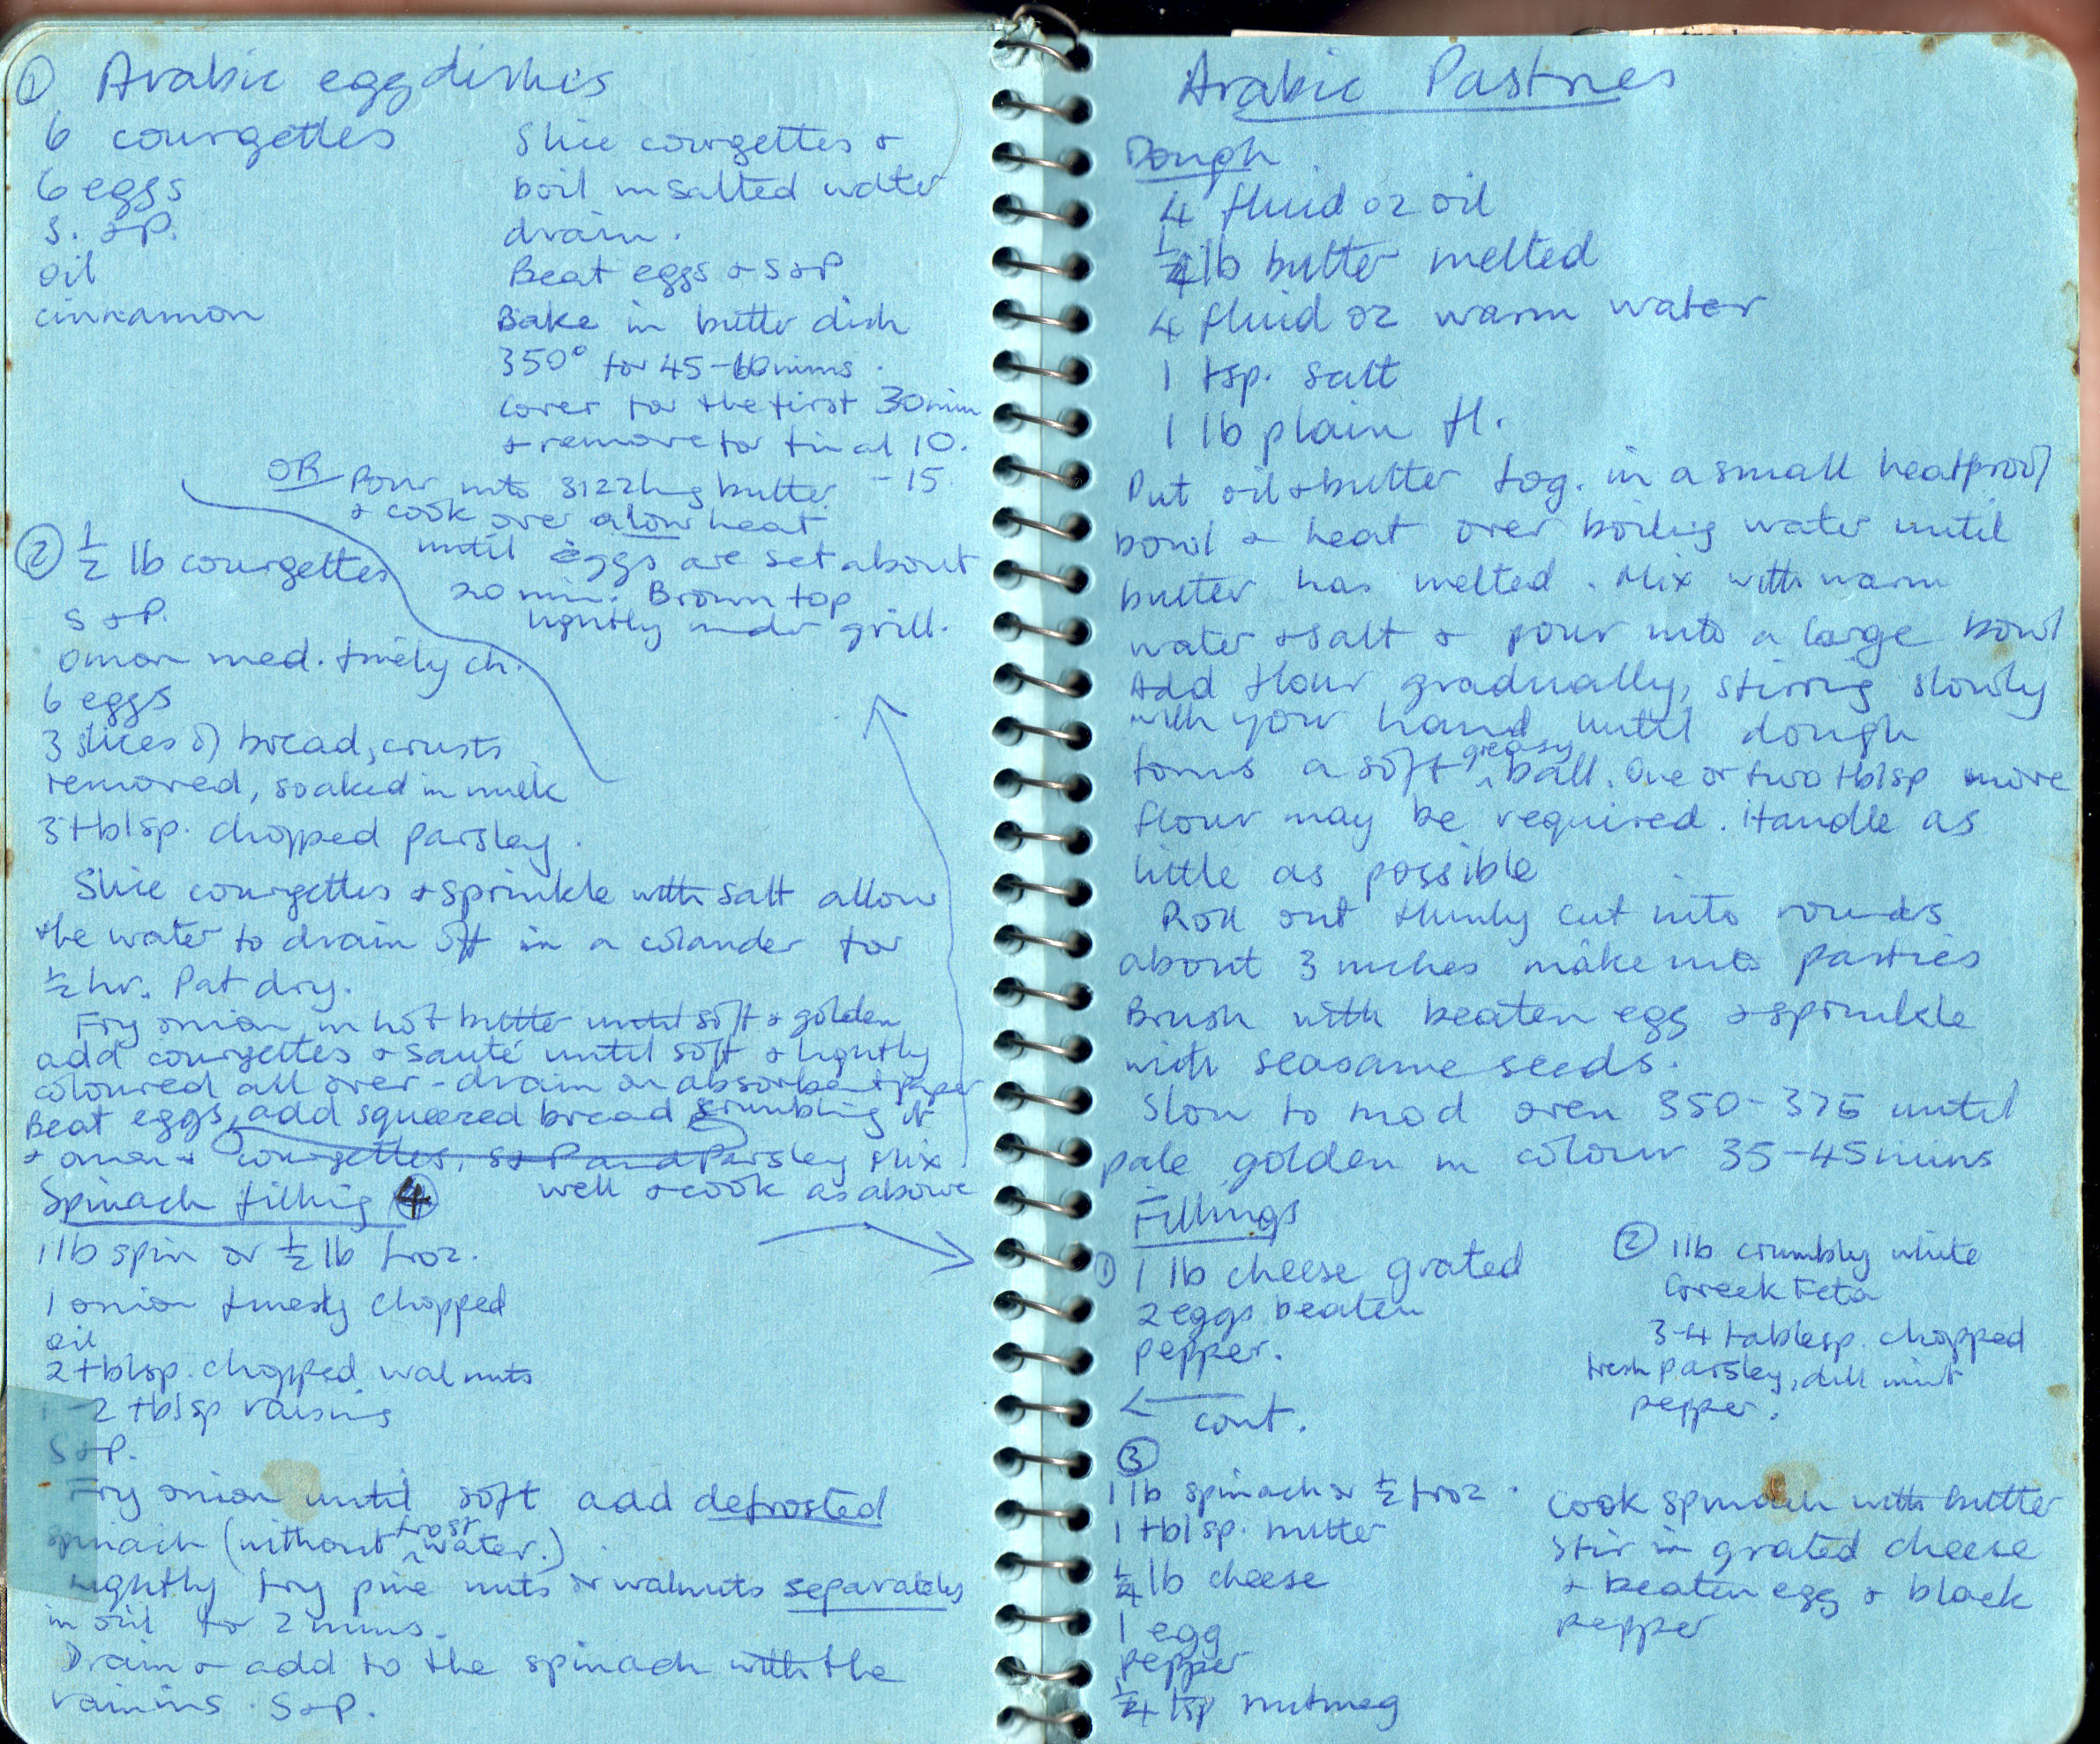 ① Arabic egg dishes
6 courgettes
6 eggs
S. + P.
oil
cinnamon
Slice courgettes +
boil in salted water
drain.
Beat eggs + S + P
Bake in butter dish
350° for 45-60 mins.
cover for the first 30 min
+ remove for final 10.
-15
OR Pour into sizzling butter
+ cook over a low heat
until eggs are set about
20 min. Brown top
lightly under grill.
② ½ lb courgettes
S + P.
onion med. finely ch.
6 eggs
3 slices of bread, crusts
removed, soaked in milk
3 tblsp. chopped parsley.
Slice courgettes + sprinkle with salt allow
the water to drain off in a colander for
½ hr. Pat dry.
Fry onion in hot butter until soft + golden
add courgettes + sauté until soft + lightly
coloured all over - drain on absorbent paper
Beat eggs, add squeezed bread crumbling it
+ onion + courgettes, S + P and Parsley Mix
well + cook as above
Spinach filling ④
1 lb spin or ½ lb froz.
1 onion finely chopped
oil
2 tblsp. chopped walnuts
1-2 tblsp raisins
S + P.
Fry onion until soft add defrosted
spinach (without frost water.)
Lightly fry pine nuts or walnuts separately
in oil for 2 mins.
Drain + add to the spinach with the
raisins. S + P.
Arabic Pastries
Dough
4 fluid oz oil
¼ lb butter melted
4 fluid oz warm water
1 tsp. salt
1 lb plain fl.
Put oil + butter tog. in a small heatproof
bowl + heat over boiling water until
butter has melted. Mix with warm
water + salt + pour into a large bowl
Add flour gradually, stirring slowly
with your hand until dough
forms a soft greasy ball. One or two tblsp more
flour may be required. Handle as
little as possible
Roll out thinly cut into rounds
about 3 inches make into pasties
Brush with beaten egg + sprinkle
with seasame seeds.
Slow to mod oven 350-375 until
pale golden in colour 35-45 mins
Fillings
① 1 lb cheese grated
2 eggs beaten
pepper.
← cont.
② 1 lb crumbly white
Greek Feta
3-4 tablesp. chopped
fresh parsley, dill mint
pepper.
③
1 lb spinach or ½ froz.
1 tblsp. butter
¼ lb cheese
1 egg
pepper
¼ tsp nutmeg
Cook spinach with butter
stir in grated cheese
+ beaten egg + black
pepper